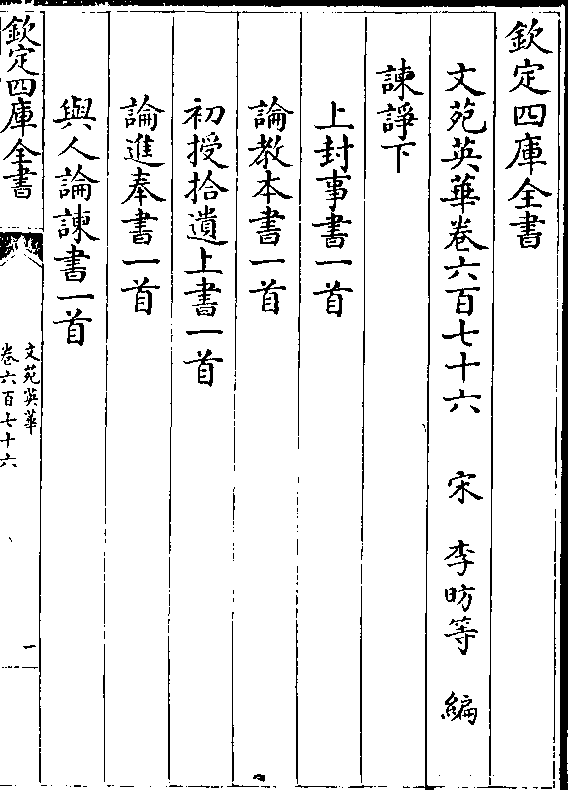 欽定四庫全書
文苑英華卷六百七十六 宋 李昉等 編
諫諍下
上封事書一首
論教本書一首
初授拾遺上書一首
論進奉書一首
與人論諫書一首
欽定四庫全書
文苑英華
卷六百七十六
一